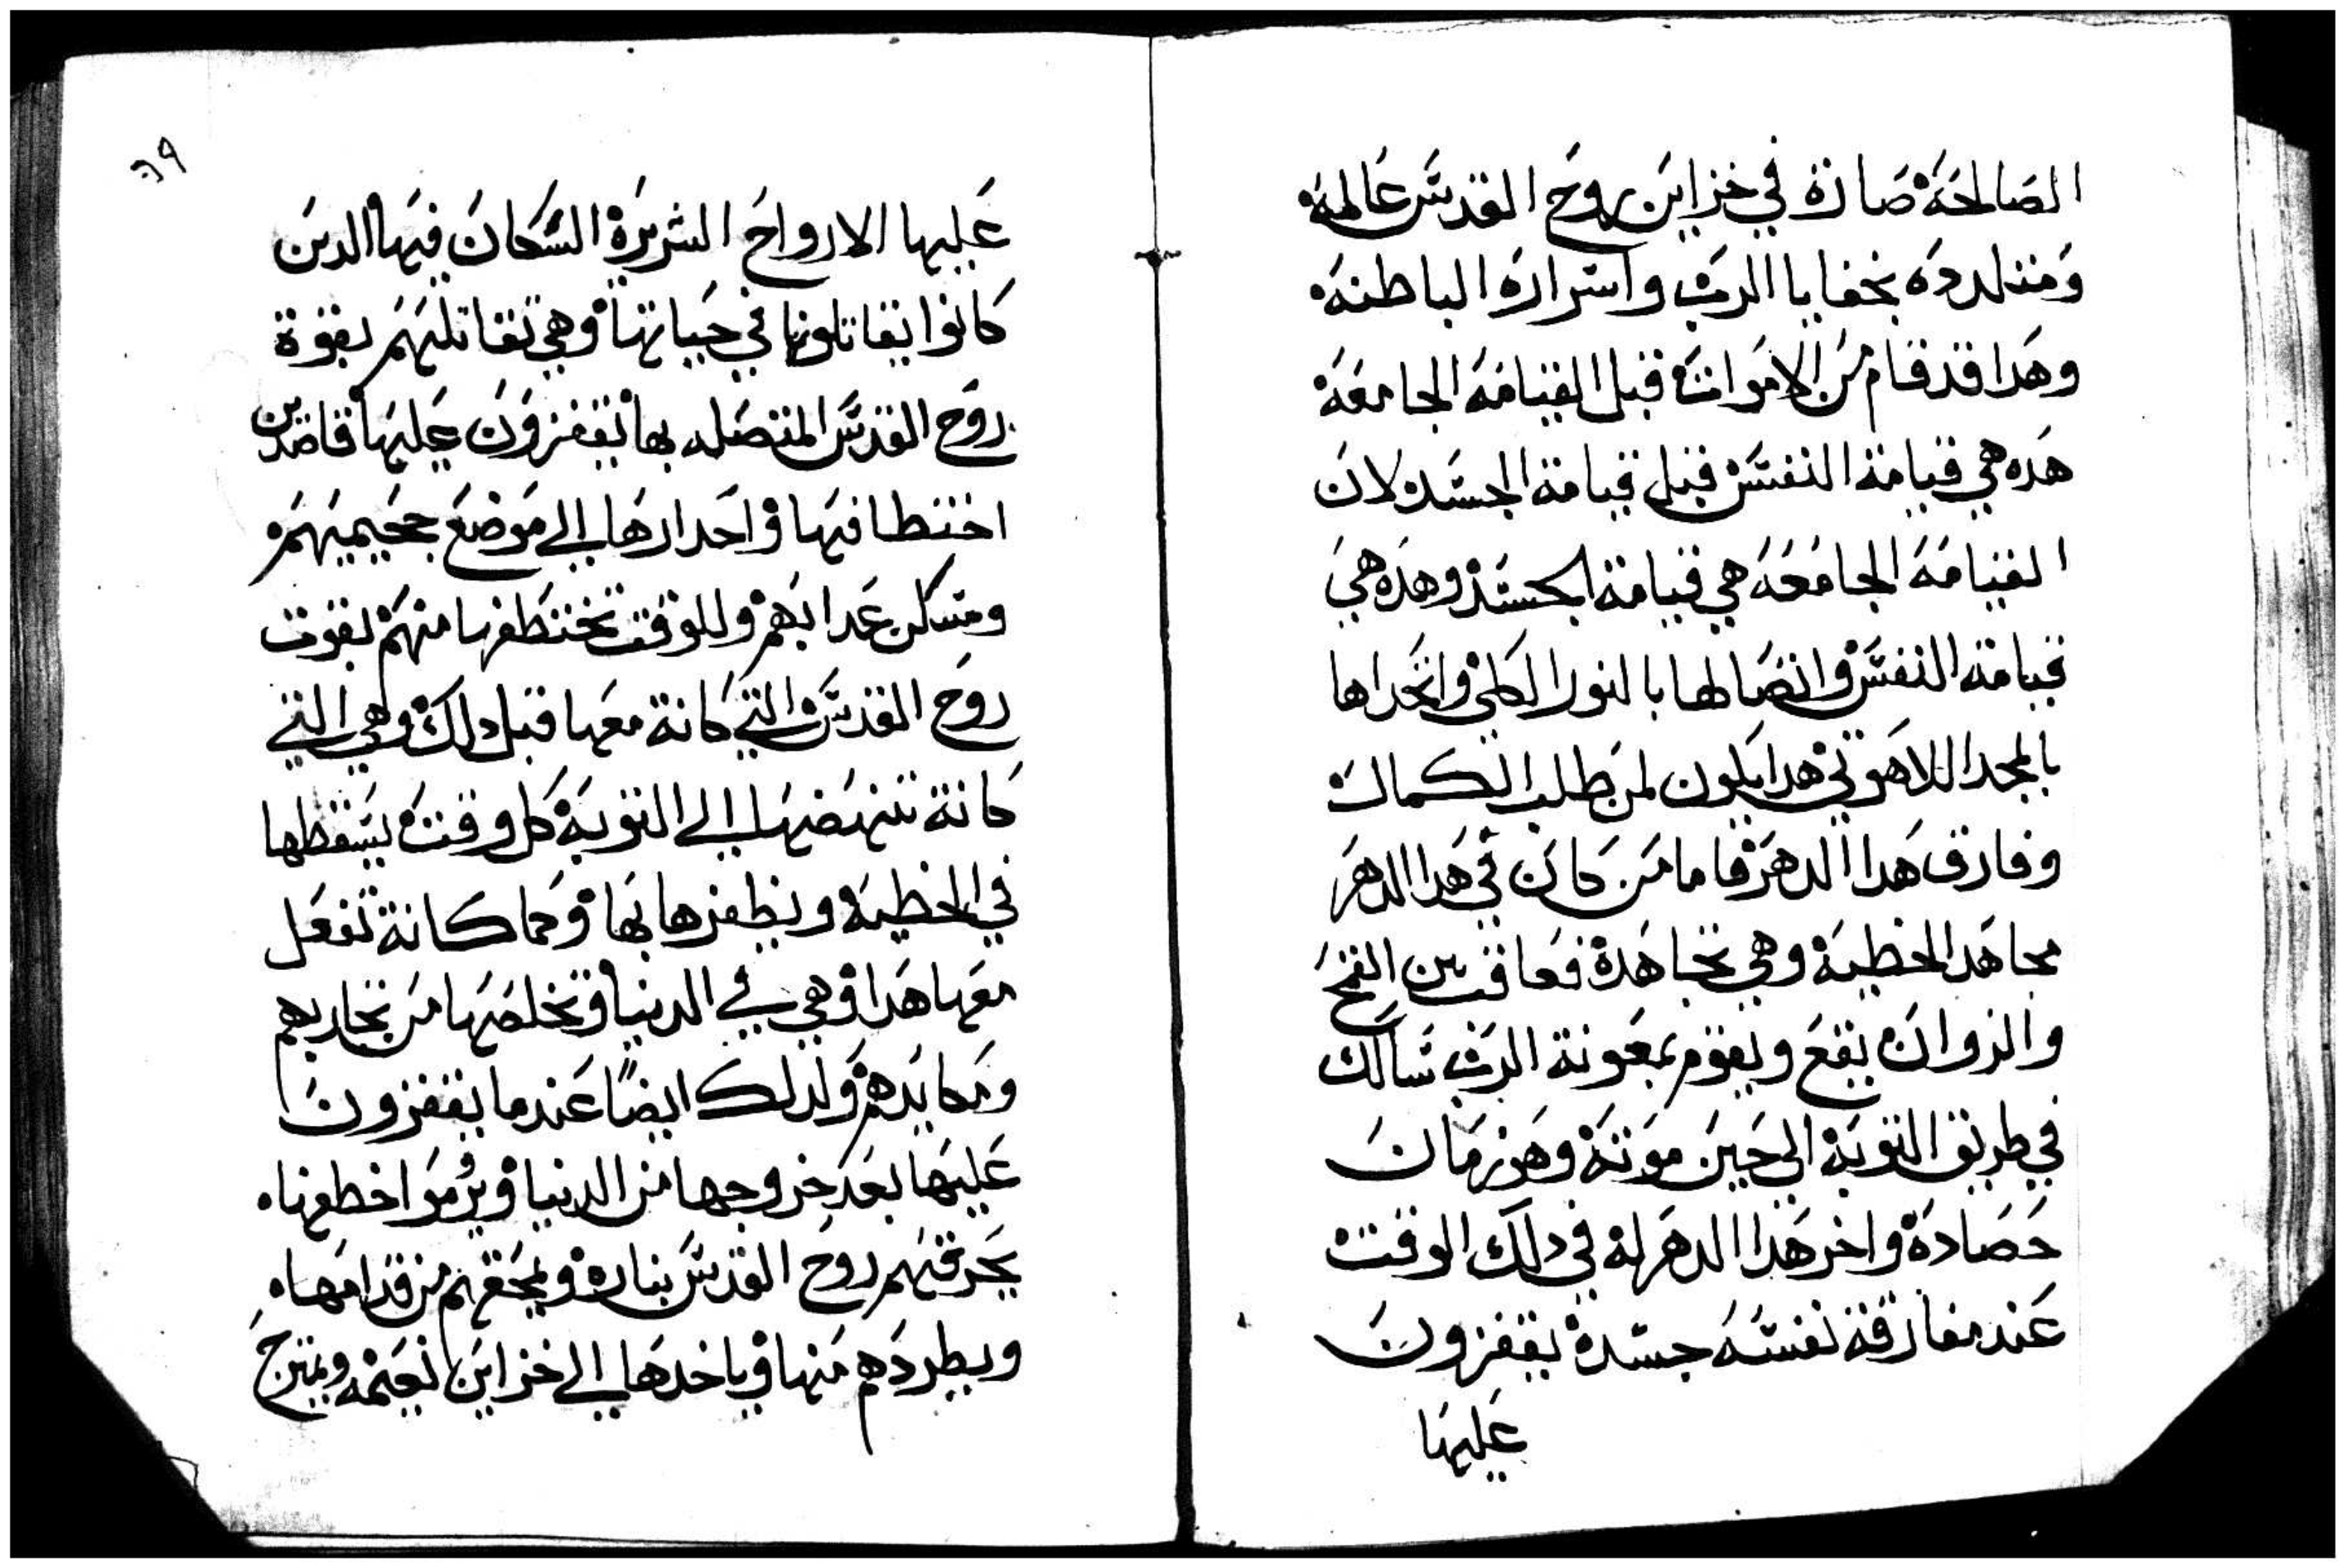 الصالحة صارة في خزاين روح القدس عالمة
ومتلددة بخفايا الرب واسراره الباطنة
وهدا قد قام من الاموات قبل القيامة الجامعة
هده هي قيامة النفس قبل قيامة الجسد لان
القيامة الجامعة هي قيامة الجسد وهده هي
قيامة النفس واتصالها بالنور الكلي واتحداها
بالمجد اللاهوتي هدا يكون لمن طلب الكمال
وفارق هدا الدهر فاما من كان في هدا الدهر
مجاهد الخطية وهي تجاهدة فعاقت بين القمح
والزوان يقع ويقوم بمعونة الرب سالك
في طريق التوبة الي حين موتة وهو زمان
حصادة واخر هذا الدهر له في دلك الوقت
عند مفارقة نفسة جسدة يقفزون
عليها
٦٩
عليها الارواح الشريرة السكان فيها الدين
كانوا يقاتلونها في حياتها وهي تقاتلهم بقوة
روح القدس المتصله بها يقفزون عليها قاصدين
اختطافها واحدارها الي موضع جحيمهم
ومسكن عدابهم وللوقت تختطفها منهم بقوت
روح القدس التي كانة معها قبل دلك وهي التي
كانة تنهضها الي التوبة كل وقت يسقطها
في الخطية ويظفرها بها وكما كانة تفعل
معها هدا وهي في الدنيا وتخلصها من تجاربهم
ومكايدهم ولدلك ايضًا عندما يقفزون
عليها بعد خروجها من الدنيا ويرُموا اخطفها
يحرقهم روح القدس بناره ويمحقهم من قدامها
ويطردهم منها وياخدها الي خزاين نعيمه ويمتزج